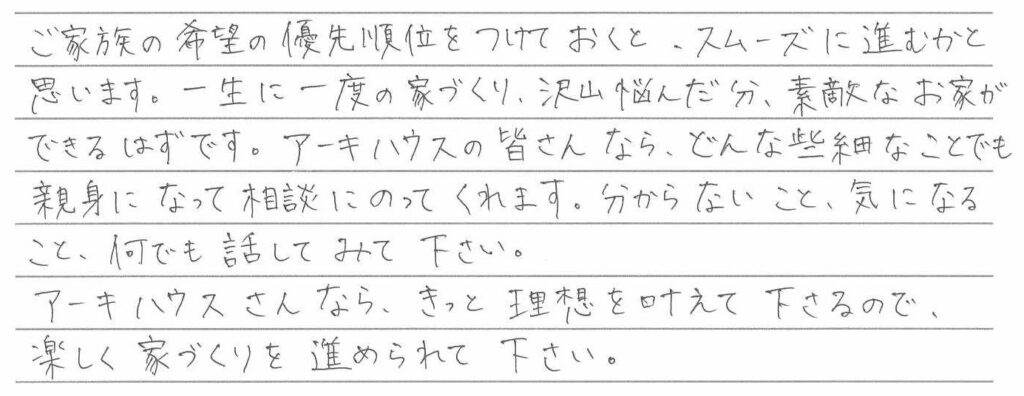 ご家族の希望の優先順位をつけておくと、スムーズに進むかと
思います。一生に一度の家づくり、沢山悩んだ分、素敵なお家が
できるはずです。アーキハウスの皆さんなら、どんな些細なことでも
親身になって相談にのってくれます。分からないこと、気になる
こと、何でも話してみて下さい。
アーキハウスさんなら、きっと理想を叶えて下さるので、
楽しく家づくりを進められて下さい。